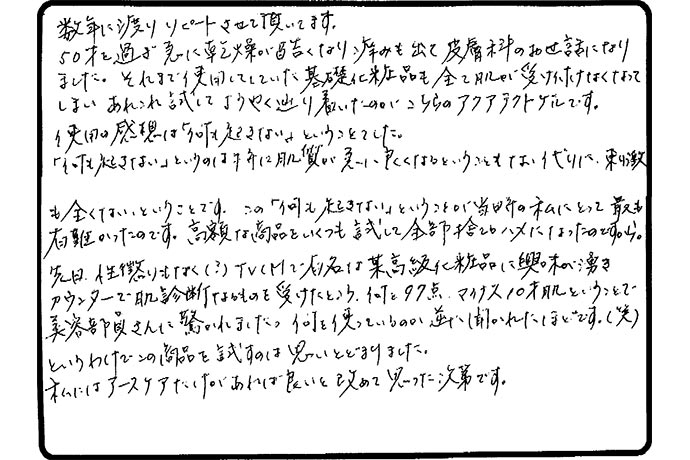 数年に渡りリピートさせて頂いてます。
50才を過ぎ急に乾燥がひどくなり痒みも出て皮膚科のお世話になり
ました。それまで使用していた基礎化粧品も全て肌が受け付けなくなって
しまいあれこれ試してようやく辿り着いたのがこちらのアクアテクトゲルです。
使用の感想は「何も起きない」ということでした。
「何も起きない」というのは特に肌質が急に良くなるということもない代りに、刺激
も全くないということです。この「何も起きない」ということが当時の私にとって最も
有難かったのです。高額な商品をいくつも試して全部捨てるハメになったのですから。
先日、性懲りもなく(?)TVCMで有名な某高級化粧品に興味が湧き
カウンターで肌診断なるものを受けたところ、何と97点、マイナス10才肌ということで
美容部員さんに驚かれました。何を使っているのか逆に聞かれたほどです。(笑)
というわけでこの商品を試すのは思いとどまりました。
私にはアースケアだけがあれば良いと改めて思った次第です。